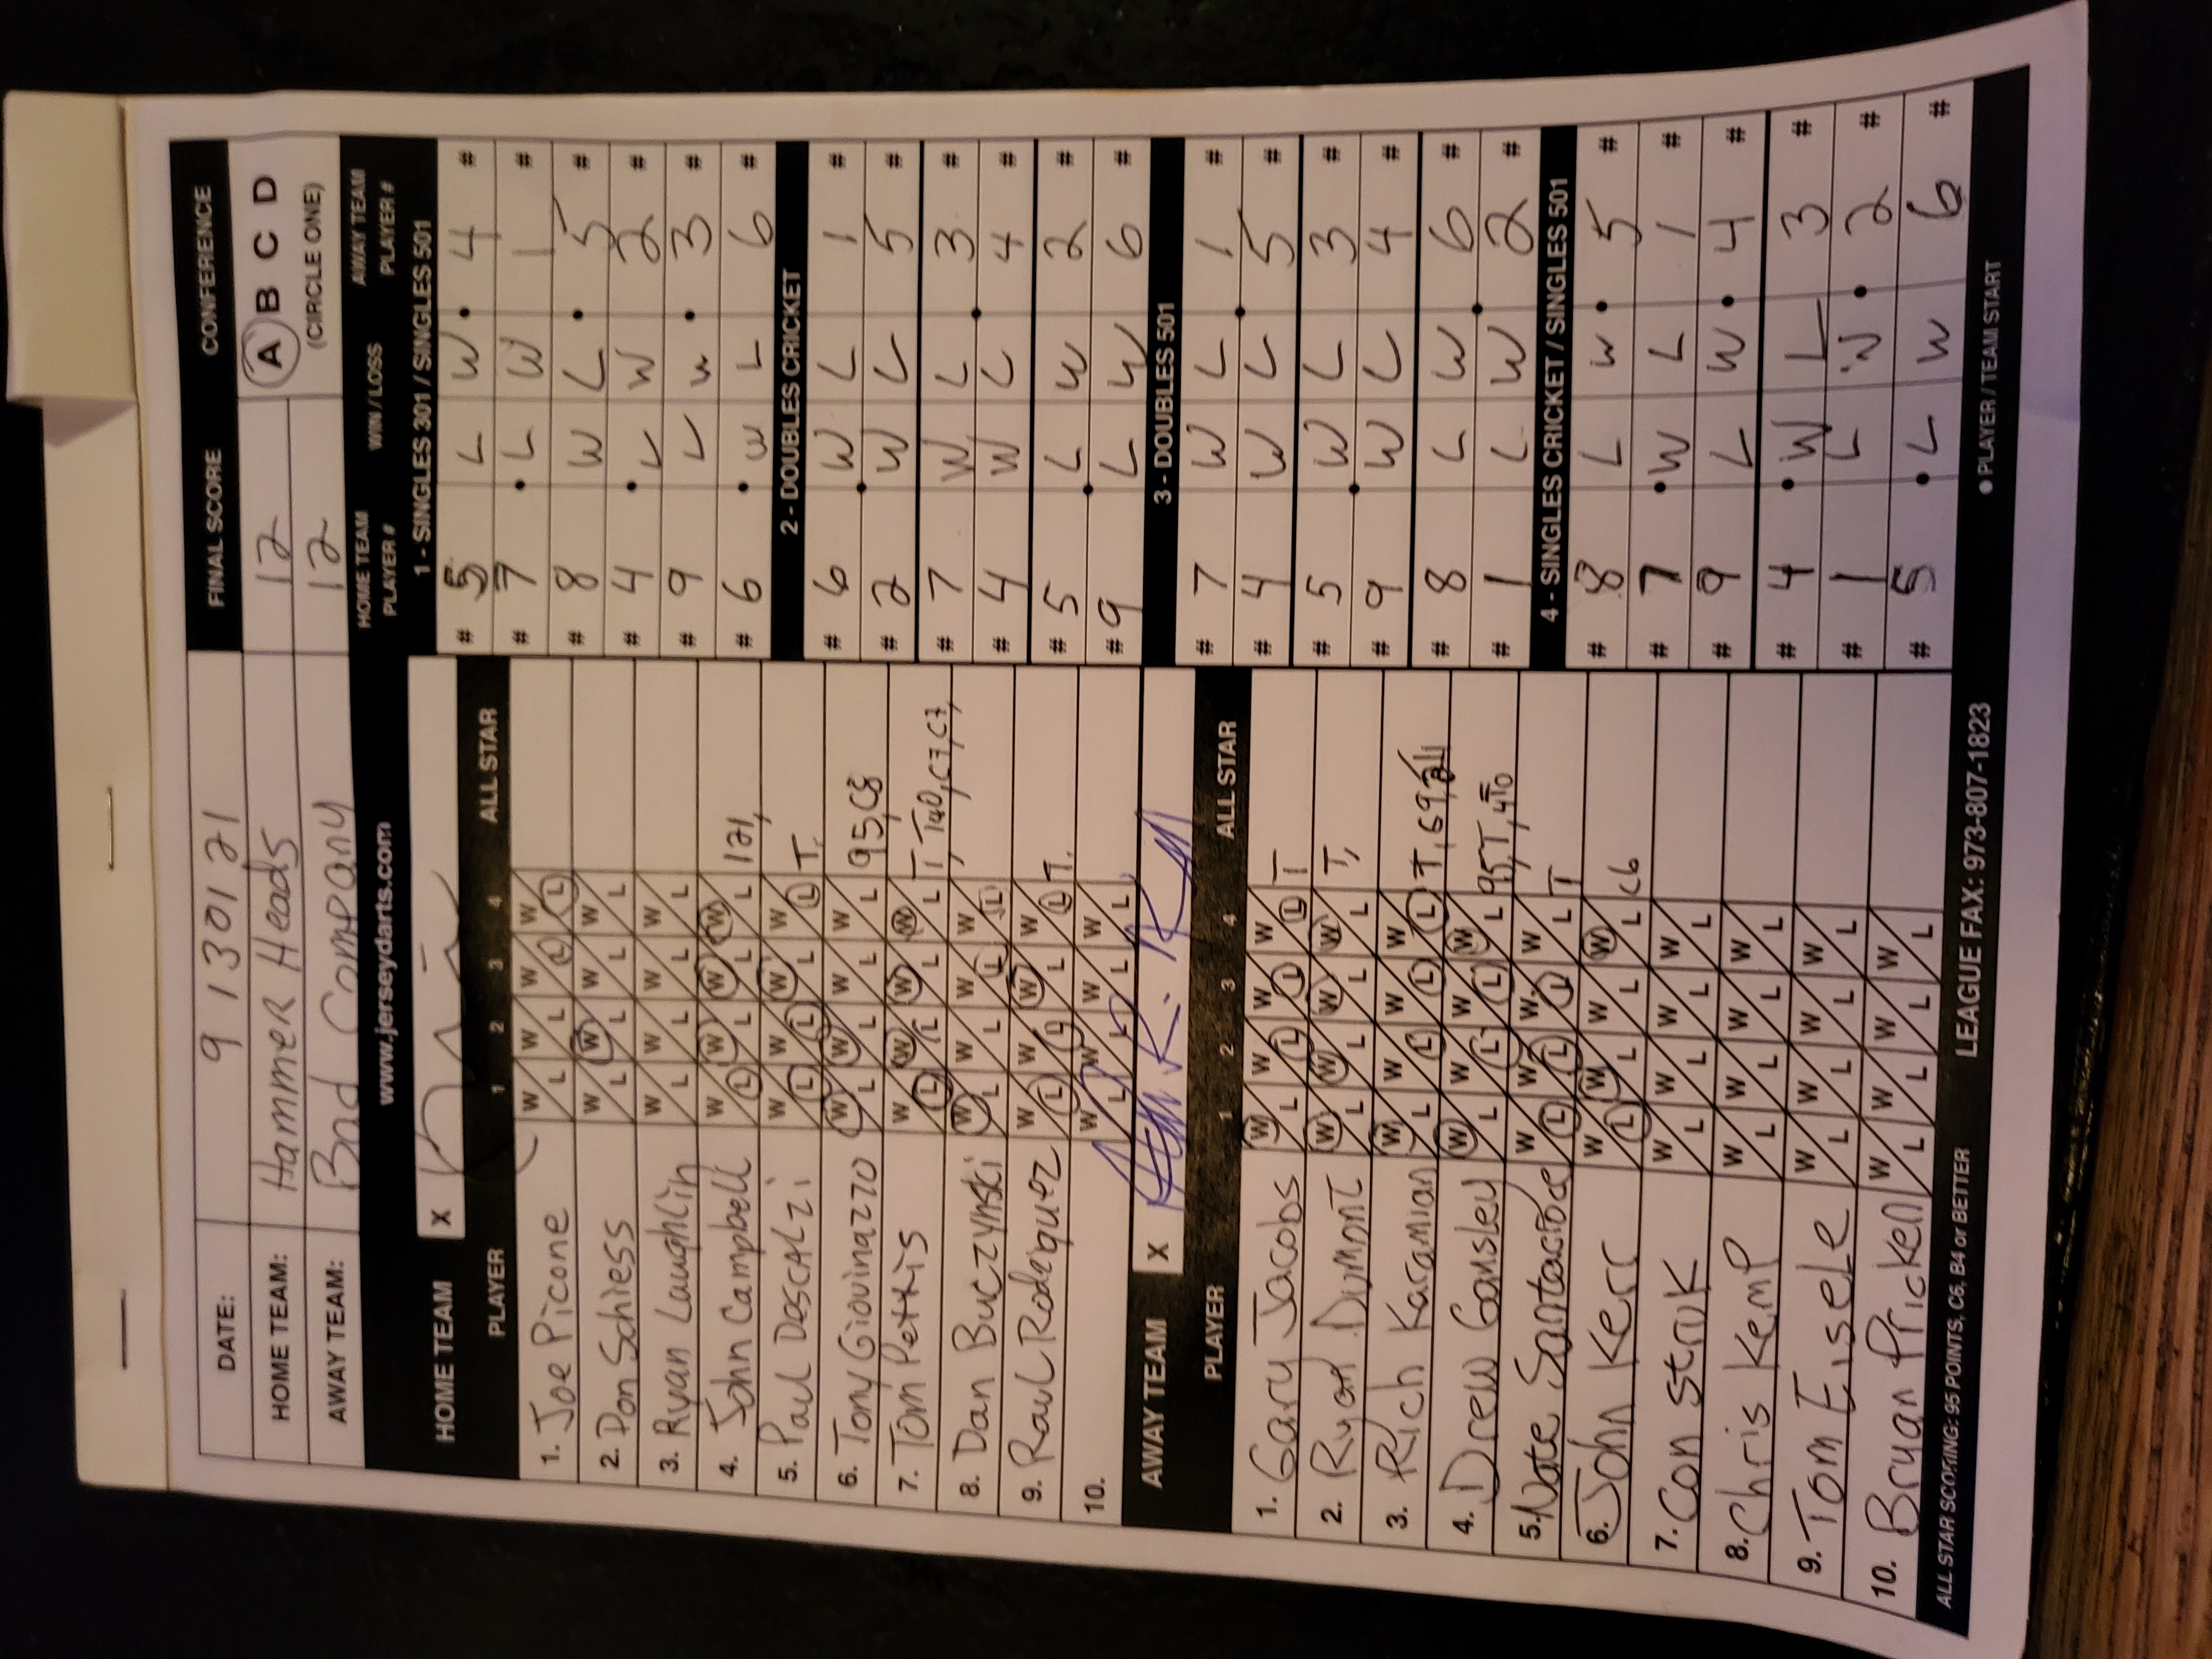 DATE: 9 / 30 / 21 FINAL SCORE CONFERENCE
HOME TEAM: Hammer Heads 12 A B C D
AWAY TEAM: Bad Company 12 (CIRCLE ONE)
www.jerseydarts.com HOME TEAM PLAYER # WIN / LOSS AWAY TEAM PLAYER #
HOME TEAM X
PLAYER 1 2 3 4 ALL STAR
1. Joe Picone W L W L W L W L
2. Don Schiess W L W L W L W L
3. Ryan Laughlin W L W L W L W L
4. John Campbell W L W L W L W L 121,
5. Paul Descalzi W L W L W L W L T.
6. Tony Giovinazzo W L W L W L W L 95, C8
7. Tom Pettis W L W L W L W L T, T140, C7, C7,
8. Dan Buczynski W L W L W L W L
9. Raul Rodriquez W L W L W L W L T.
10. W L W L W L W L
AWAY TEAM X
PLAYER 1 2 3 4 ALL STAR
1. Gary Jacobs W L W L W L W L T
2. Ryan Dumont W L W L W L W L T,
3. Rich Karamian W L W L W L W L T,
4. Drew Gansley W L W L W L W L 95, T,
5. Nate W L W L W L W L T
6. John Kerc W L W L W L W L C6
7. Con Struk W L W L W L W L
8. Chris Kemp W L W L W L W L
9. Tom Eisele W L W L W L W L
10. Bryan Pricken W L W L W L W L
ALL STAR SCORING: 95 POINTS, C6, B4 or BETTER LEAGUE FAX: 973-807-1823
1 - SINGLES 301 / SINGLES 501
# 5 L W • 4 #
# 7 • L W 1 #
# 8 W L • 5 #
# 4 • L W 2 #
# 9 L W • 3 #
# 6 • W L 6 #
2 - DOUBLES CRICKET
# 6 W L 1 #
# 2 W L 5 #
# 7 W L 3 #
# 4 W L 4 #
# 5 L W 2 #
# 9 L W 6 #
3 - DOUBLES 501
# 7 W L 1 #
# 4 W L 5 #
# 5 W L 3 #
# 9 W L 4 #
# 8 L W 6 #
# 1 L W 2 #
4 - SINGLES CRICKET / SINGLES 501
# 8 L W • 5 #
# 7 • W L 1 #
# 9 L W • 4 #
# 4 • W L 3 #
# 1 L W • 2 #
# 5 • L W 6 #
● PLAYER / TEAM START